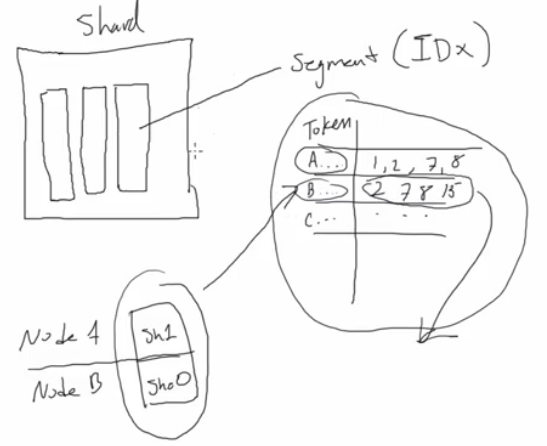 Shard
Segment (IDx)
Token
A.... 1, 2, 7, 8
B... 2 7 8 15
C... . . .
Node A Sh1
Node B Sh0